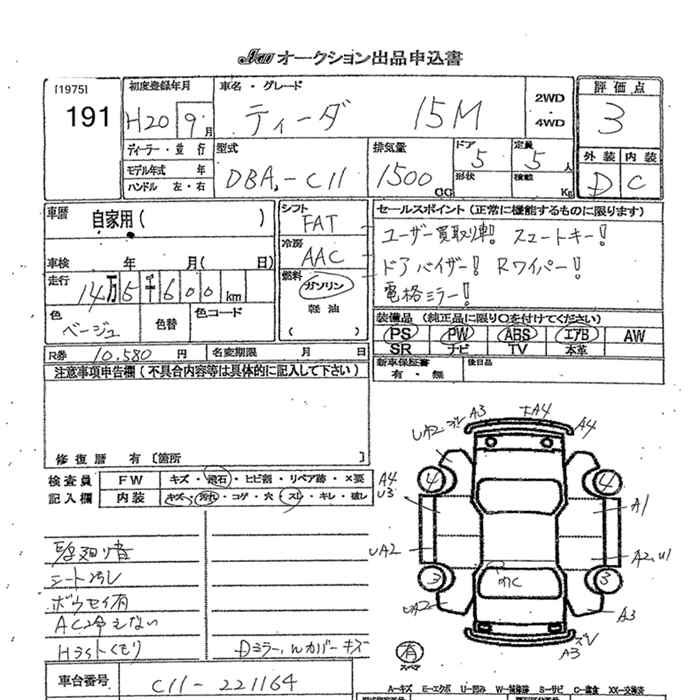 JAU オークション出品申込書
[1975]
191
初度登録年月
H20 9月
車名・グレード
ティーダ 15M
2WD
・
4WD
評価点
3
ディーラー・並行
モデル年式 年
ハンドル 左・右
型式
DBA-C11
排気量
1500 CC
ドア 5
形状
定員 5 人
積載 Kg
外装 内装
D C
車歴 自家用( )
車検 年 月( 日)
走行 14万5千600km
色 ベージュ
色替
色コード
シフト
FAT
冷房
AAC
燃料
ガソリン
軽油
( )
セールスポイント(正常に機能するものに限ります)
ユーザー買取り車! スマートキー!
ドアバイザー! Rワイパー!
電格ミラー!
装備品(純正品に限り〇を付けてください)
PS PW ABS エアB AW
SR ナビ TV 本革
新車保証書
有・無
後日品
R券 10,580 円 名変期限 月 日
注意事項申告欄(不具合内容等は具体的に記入して下さい)
修復歴 有〔箇所 〕
検査員 FW キズ・飛石・ヒビ割・リペア跡・×要
記入欄 内装 キズ・汚れ・コゲ・穴・スレ・キレ・破レ
シート汚レ
ボウセイ有
AC冷えない
Hライトくもり
Dミラー,hルカバーキズ
車台番号 C11-221164
A3 A4 A4
UA2
4 4
A4
U3
A1
UA2
A2,U1
3 3
UA2
A3
A3
有
スペア
A-キズ E-エクボ U-凹み W-補修跡 S-サビ C-腐食 XX-交換済